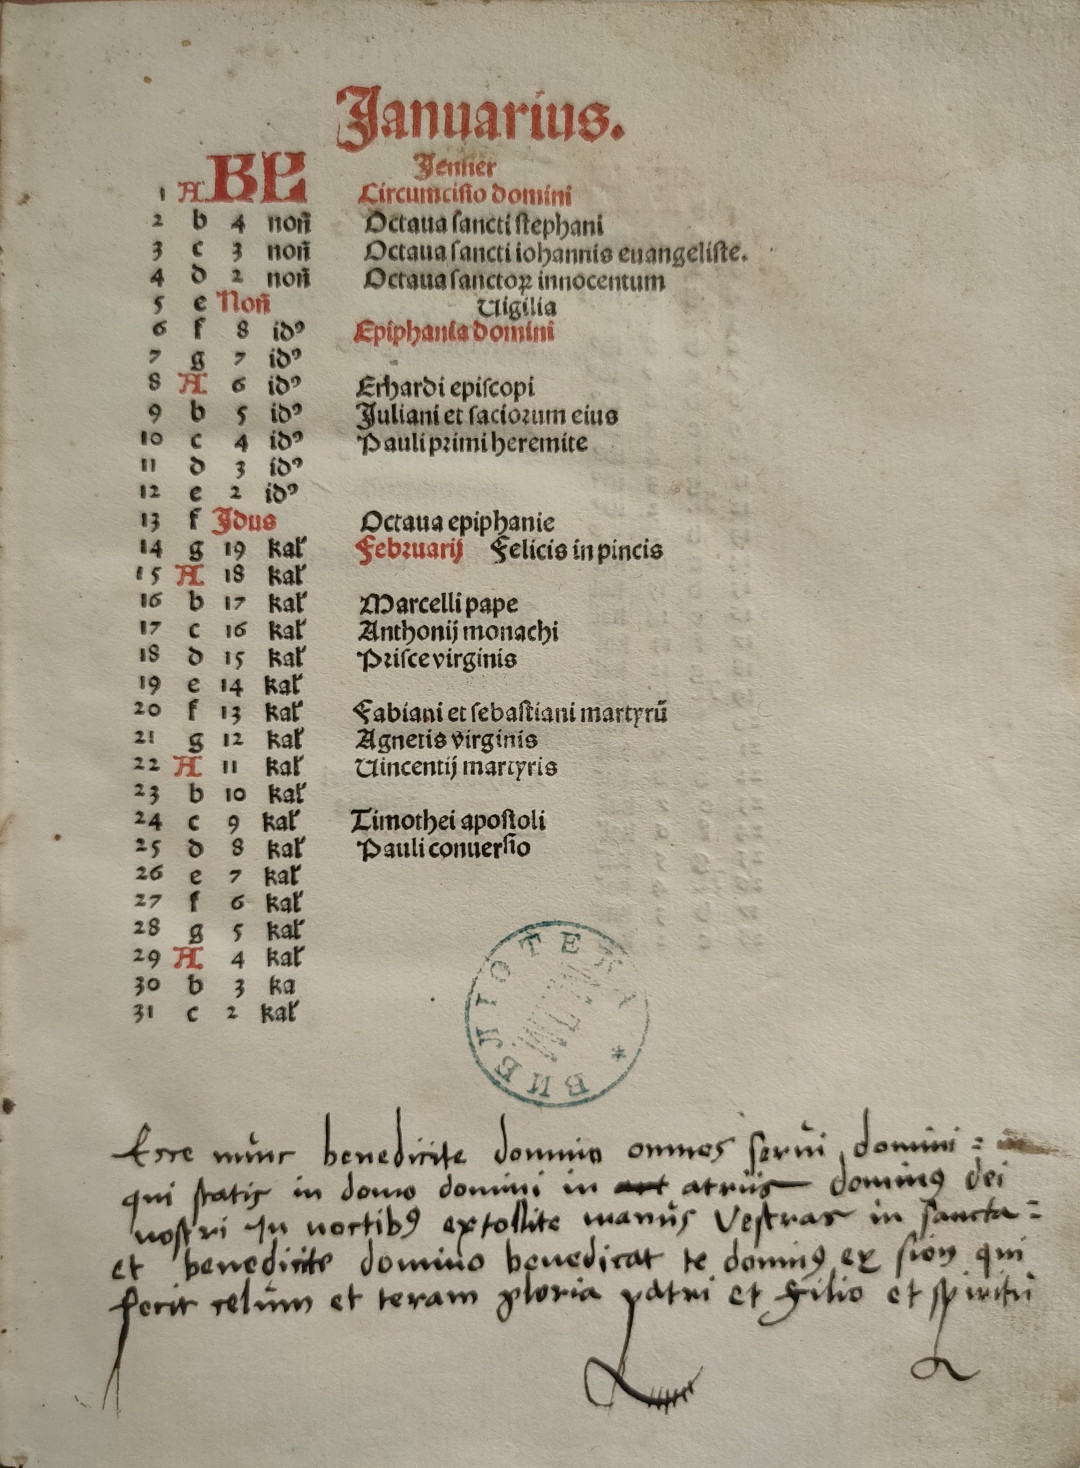 Januarius.
KL Jenner
1 A Circumcisio domini
2 b 4 non̄ Octaua sancti stephani
3 c 3 non̄ Octaua sancti iohannis euangeliste.
4 d 2 non̄ Octaua sanctoꝝ innocentum
5 e Non̄ Uigilia
6 f 8 idꝰ Epiphania domini
7 g 7 idꝰ
8 A 6 idꝰ Erhardi episcopi
9 b 5 idꝰ Juliani et saciorum eius
10 c 4 idꝰ Pauli primi heremite
11 d 3 idꝰ
12 e 2 idꝰ
13 f Jdus Octaua epiphanie
14 g 19 kal̄ Februarij Felicis in pincis
15 A 18 kal̄
16 b 17 kal̄ Marcelli pape
17 c 16 kal̄ Anthonij monachi
18 d 15 kal̄ Prisce virginis
19 e 14 kal̄
20 f 13 kal̄ Fabiani et sebastiani martyrū
21 g 12 kal̄ Agnetis virginis
22 A 11 kal̄ Uincentij martyris
23 b 10 kal̄
24 c 9 kal̄ Timothei apostoli
25 d 8 kal̄ Pauli conuersio
26 e 7 kal̄
27 f 6 kal̄
28 g 5 kal̄
29 A 4 kal̄
30 b 3 ka
31 c 2 kal̄
БИБЛІОТЕКА *
Ecce nunc benedicite domino omnes serui domini :
qui statis in domo domini in atriis dominꝰ dei
nostri In noctibꝰ extollite manus vestras in sancta :
et benedicite domino benedicat te dominꝰ ex sion qui
fecit celum et teram gloria patri et filio et spiritu